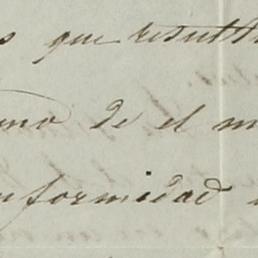 s que result
mo de el m
nformidad